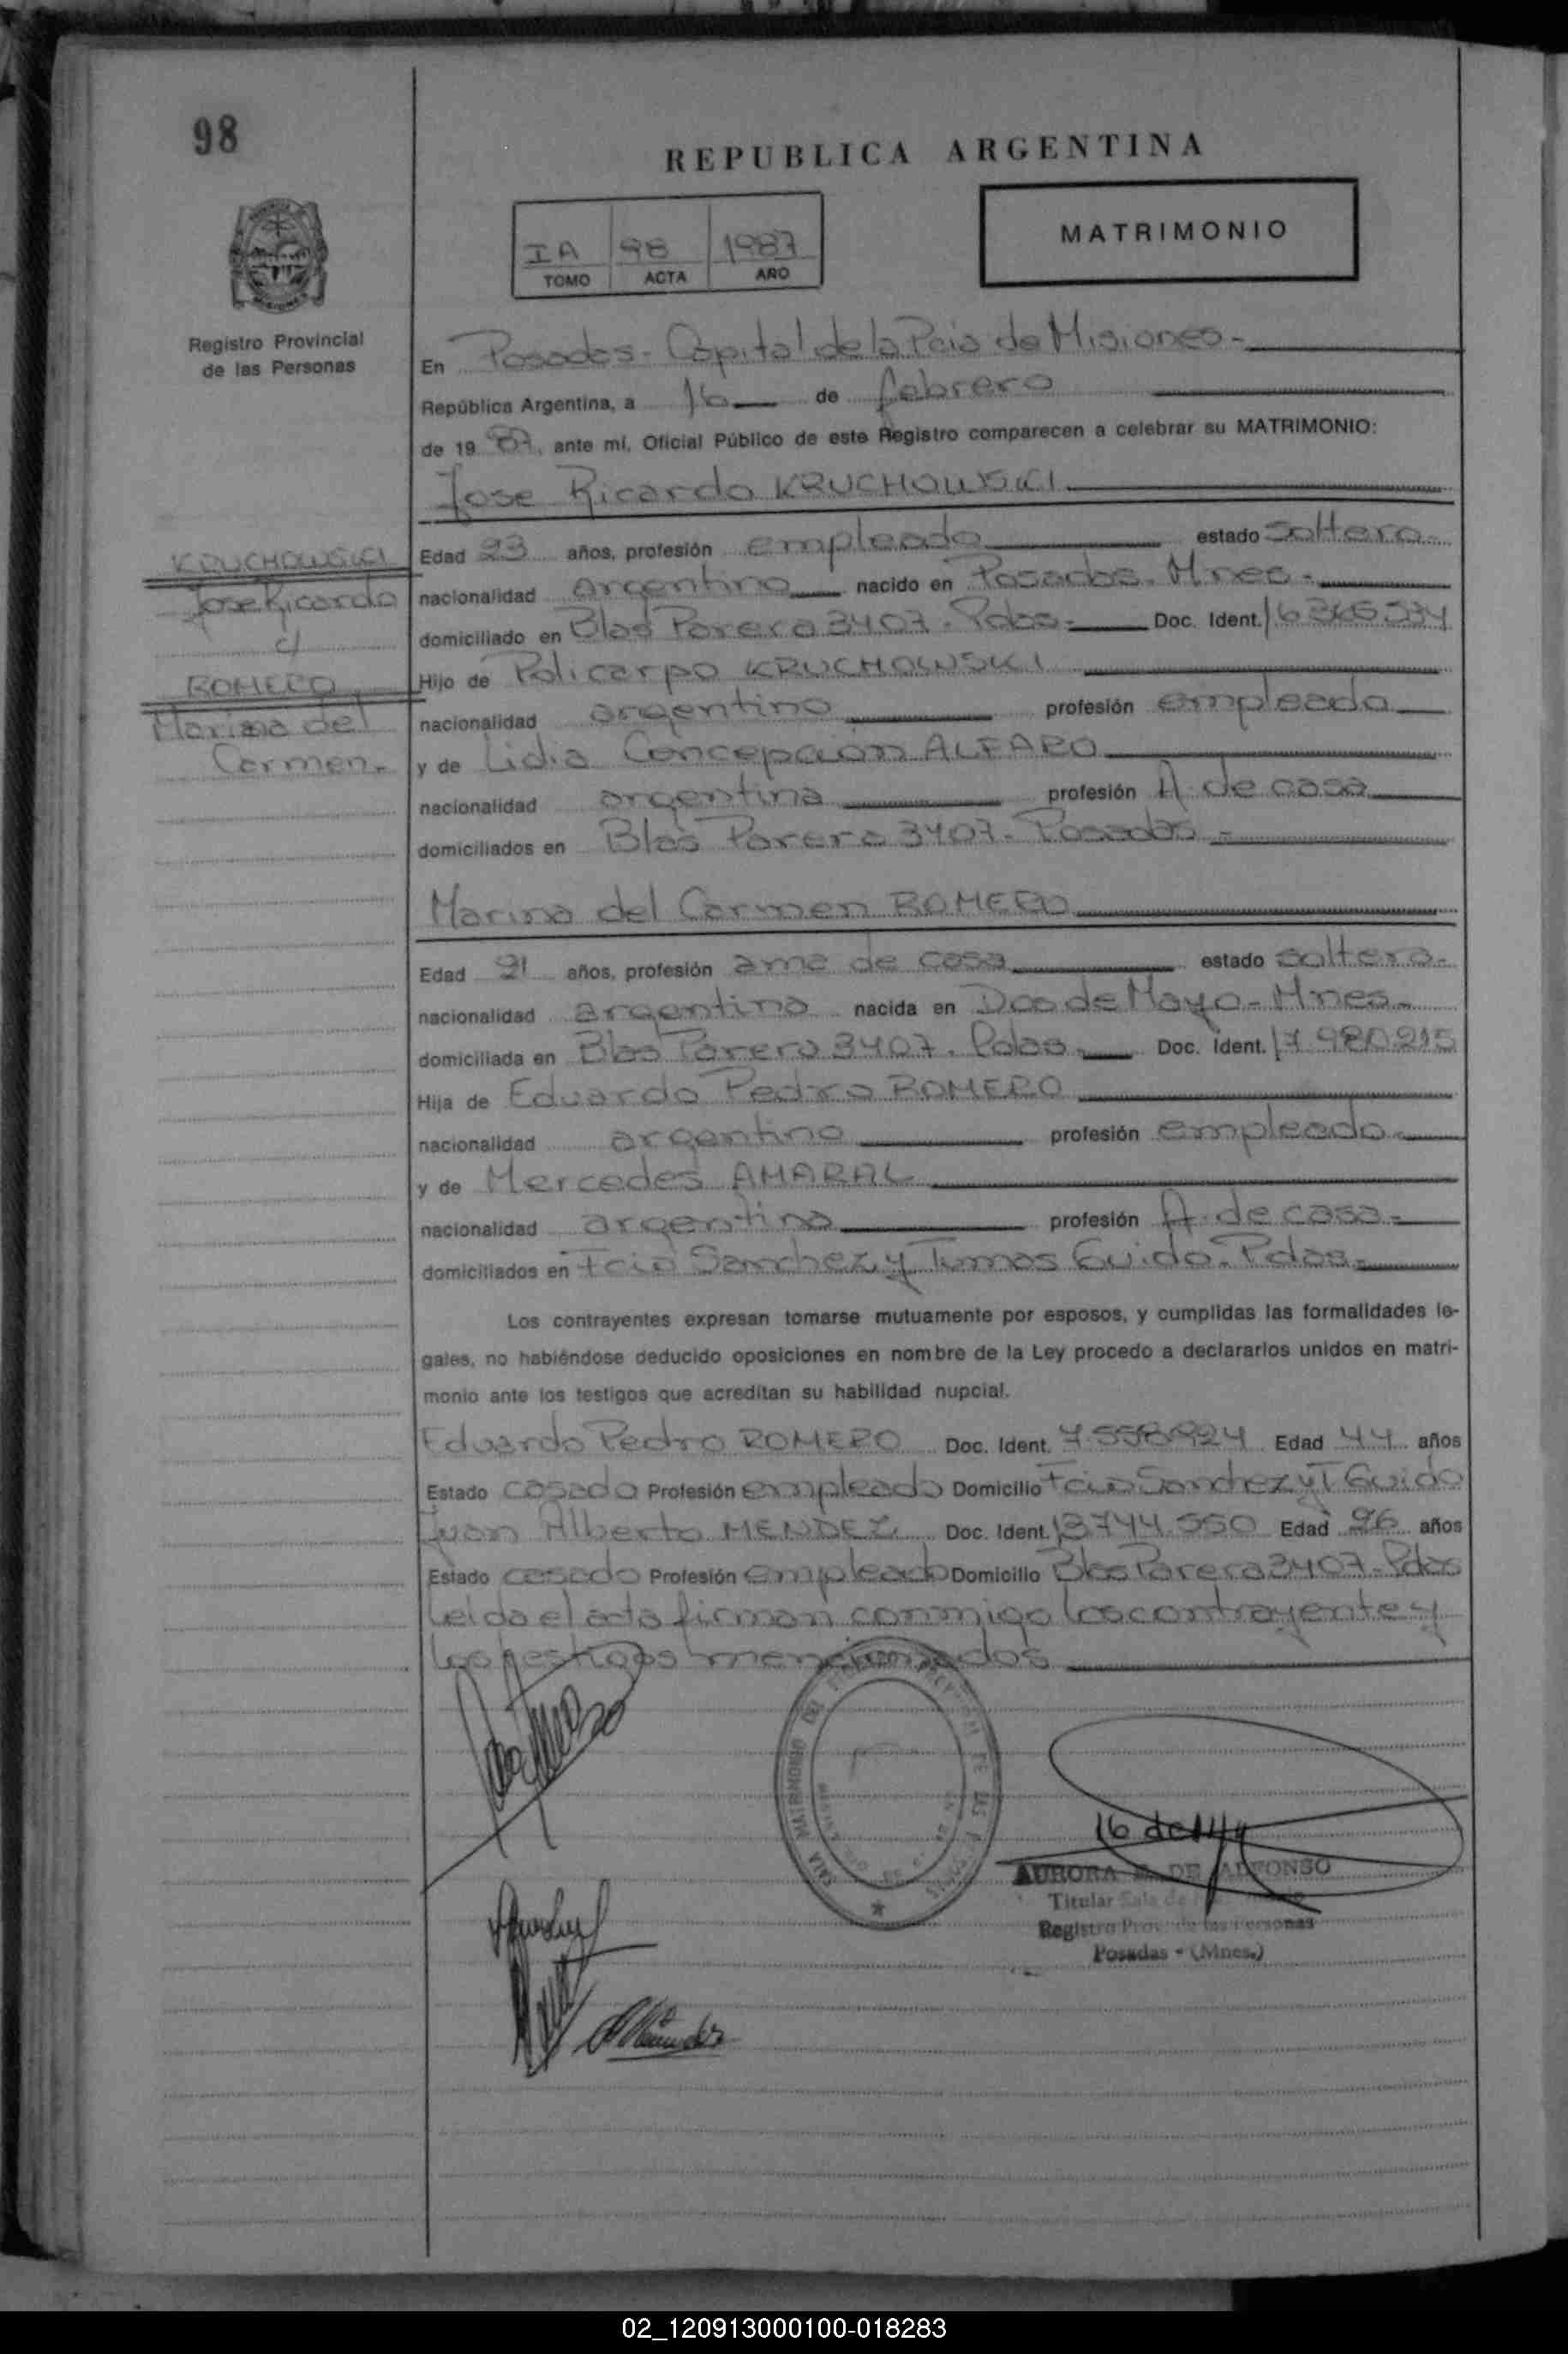 98
REPUBLICA ARGENTINA
IA 98 1987
TOMO ACTA AÑO
MATRIMONIO
Registro Provincial
de las Personas
En Posadas - Capital de la Pcia de Misiones -
República Argentina, a 16 de febrero
de 19 87, ante mí, Oficial Público de este Registro comparecen a celebrar su MATRIMONIO:
Jose Ricardo KRUCHOWSKI
KRUCHOWSKI
Jose Ricardo
c/
ROMERO
Marina del
Carmen.-
Edad 23 años, profesión empleado estado soltero.-
nacionalidad argentino nacido en Posadas. Mnes.-
domiciliado en Blas Parera 3407. Pdas.- Doc. Ident.
Hijo de Policarpo KRUCHOWSKI
nacionalidad argentino profesión empleado
y de Lidia Concepción ALFARO
nacionalidad argentina profesión A. de casa
domiciliados en Blas Parera 3407 - Posadas.-
Marina del Carmen ROMERO
Edad 21 años, profesión ama de casa estado soltera.-
nacionalidad argentina nacida en Dos de Mayo - Mnes.-
domiciliada en Blas Parera 3407. Pdas.- Doc. Ident. 17 980215
Hija de Eduardo Pedro ROMERO
nacionalidad argentino profesión empleado
y de Mercedes AMARAL
nacionalidad argentina profesión A. de casa.-
domiciliados en Fcio Sanchez y Tomas Guido. Pdas.-
Los contrayentes expresan tomarse mutuamente por esposos, y cumplidas las formalidades le-
gales, no habiéndose deducido oposiciones en nombre de la Ley procedo a declararlos unidos en matri-
monio ante los testigos que acreditan su habilidad nupcial.
Eduardo Pedro ROMERO Doc. Ident. 7.558.924 Edad 44 años
Estado casado Profesión empleado Domicilio Fcio Sanchez y T Guido
Juan Alberto MENDEZ Doc. Ident. 13744.550 Edad 26 años
Estado casado Profesión empleado Domicilio Blas Parera 3407 - Pdas
Leida el acta firman conmigo los contrayente y
los testigos mencionados
SALA MATRIMONIO DEL
16 de
AURORA DE ALFONSO
Titular Sala de
Registro Prov. de las Personas
Posadas - (Mnes.)
02_120913000100-018283